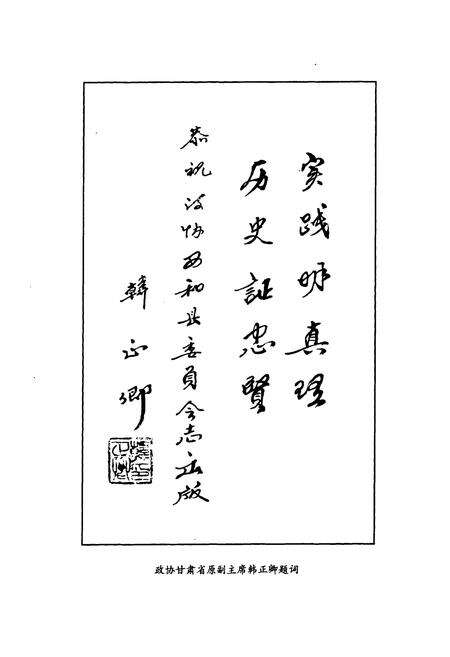 实践明真理
历史証忠賢
恭祝政协西和县委员会志出版
韓正卿
政协甘肃省原副主席韩正卿题词